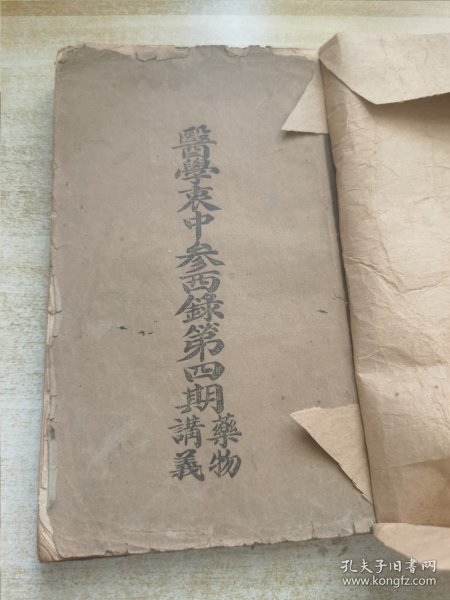 醫學衷中参西錄第四期
藥物
講義
孔夫子旧书网
www.kongfz.com